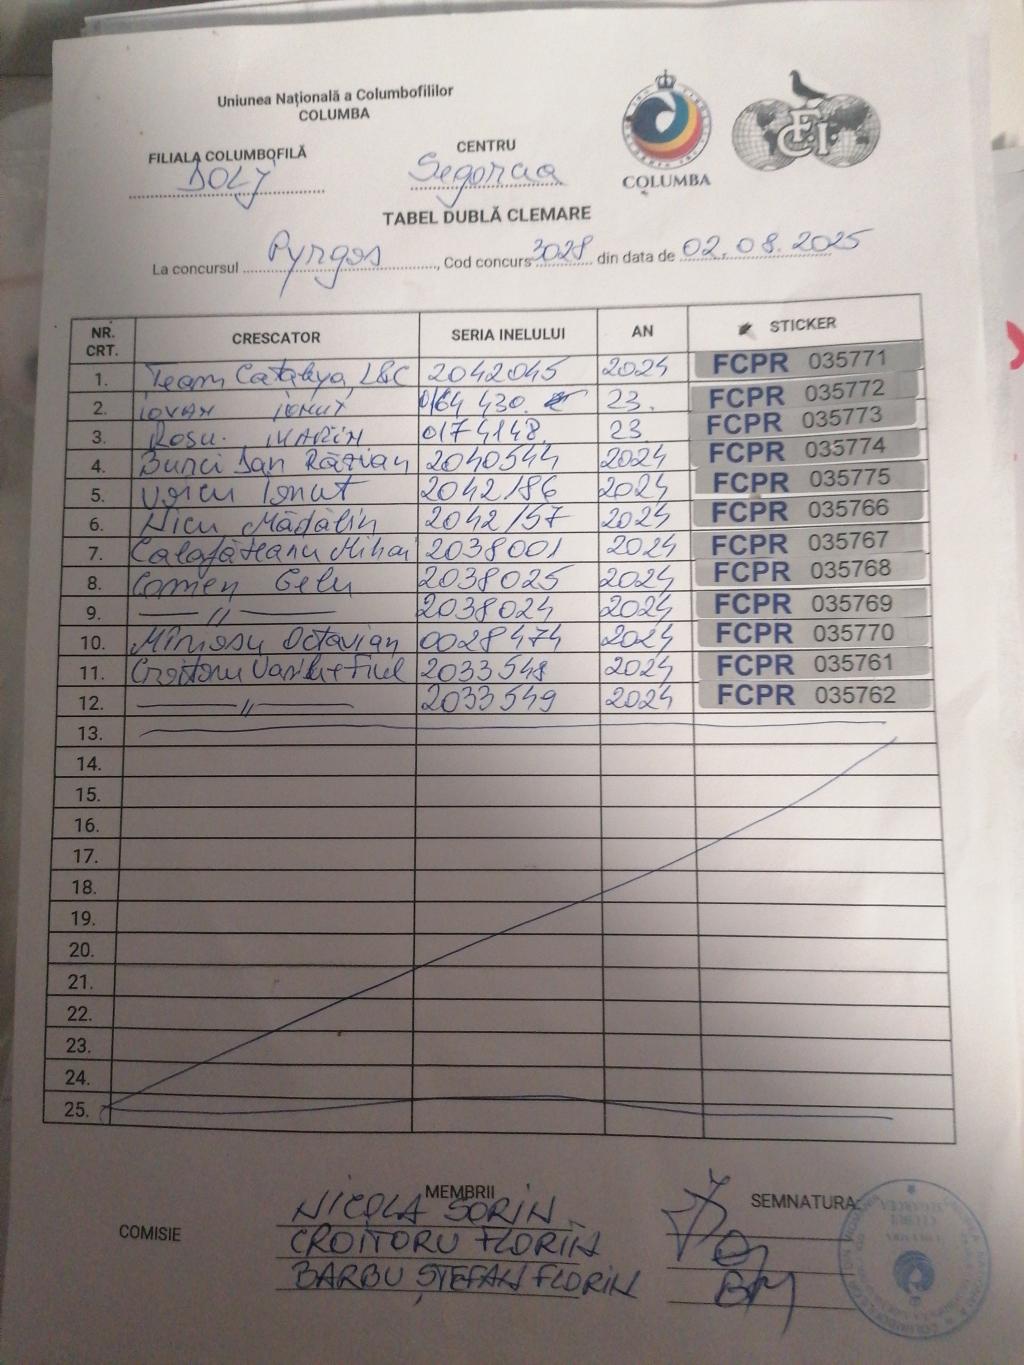 Uniunea Națională a Columbofililor
COLUMBA
FILIALA COLUMBOFILĂ
DOLJ
CENTRU
Segarcea
COLUMBA
F.C.I.
TABEL DUBLĂ CLEMARE
La concursul Pyrgos, Cod concurs 3028 din data de 02.08.2025
NR. CRT. CRESCATOR SERIA INELULUI AN STICKER
1. Team Cataleya L&C 2042045 2024 FCPR 035771
2. Iovan Ionuț 0164430 23. FCPR 035772
3. Roșu Marin 0174148 23 FCPR 035773
4. Dan Răzvan 2040544 2024 FCPR 035774
5. Voicu Ionuț 2042186 2024 FCPR 035775
6. Nicu Mădălin 2042157 2024 FCPR 035766
7. Calafăteanu Mihai 2038001 2024 FCPR 035767
8. Comen Gelu 2038025 2024 FCPR 035768
9. —— // —— 2038024 2024 FCPR 035769
10. Octavian 0028474 2024 FCPR 035770
11. Croitoru Vasile + Fiul 2033548 2024 FCPR 035761
12. —— // —— 2033549 2024 FCPR 035762
13.
14.
15.
16.
17.
18.
19.
20.
21.
22.
23.
24.
25.
COMISIE
MEMBRII
SEMNATURA:
NICOLA SORIN
CROITORU FLORIN
BARBU ȘTEFAN FLORIN